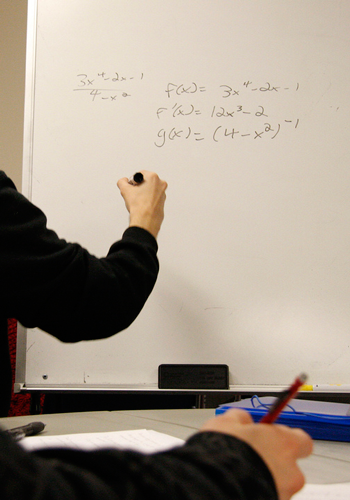 3x⁴-2x-1
4-x²
f(x)= 3x⁴-2x-1
f'(x)= 12x³-2
g(x)= (4-x²)⁻¹